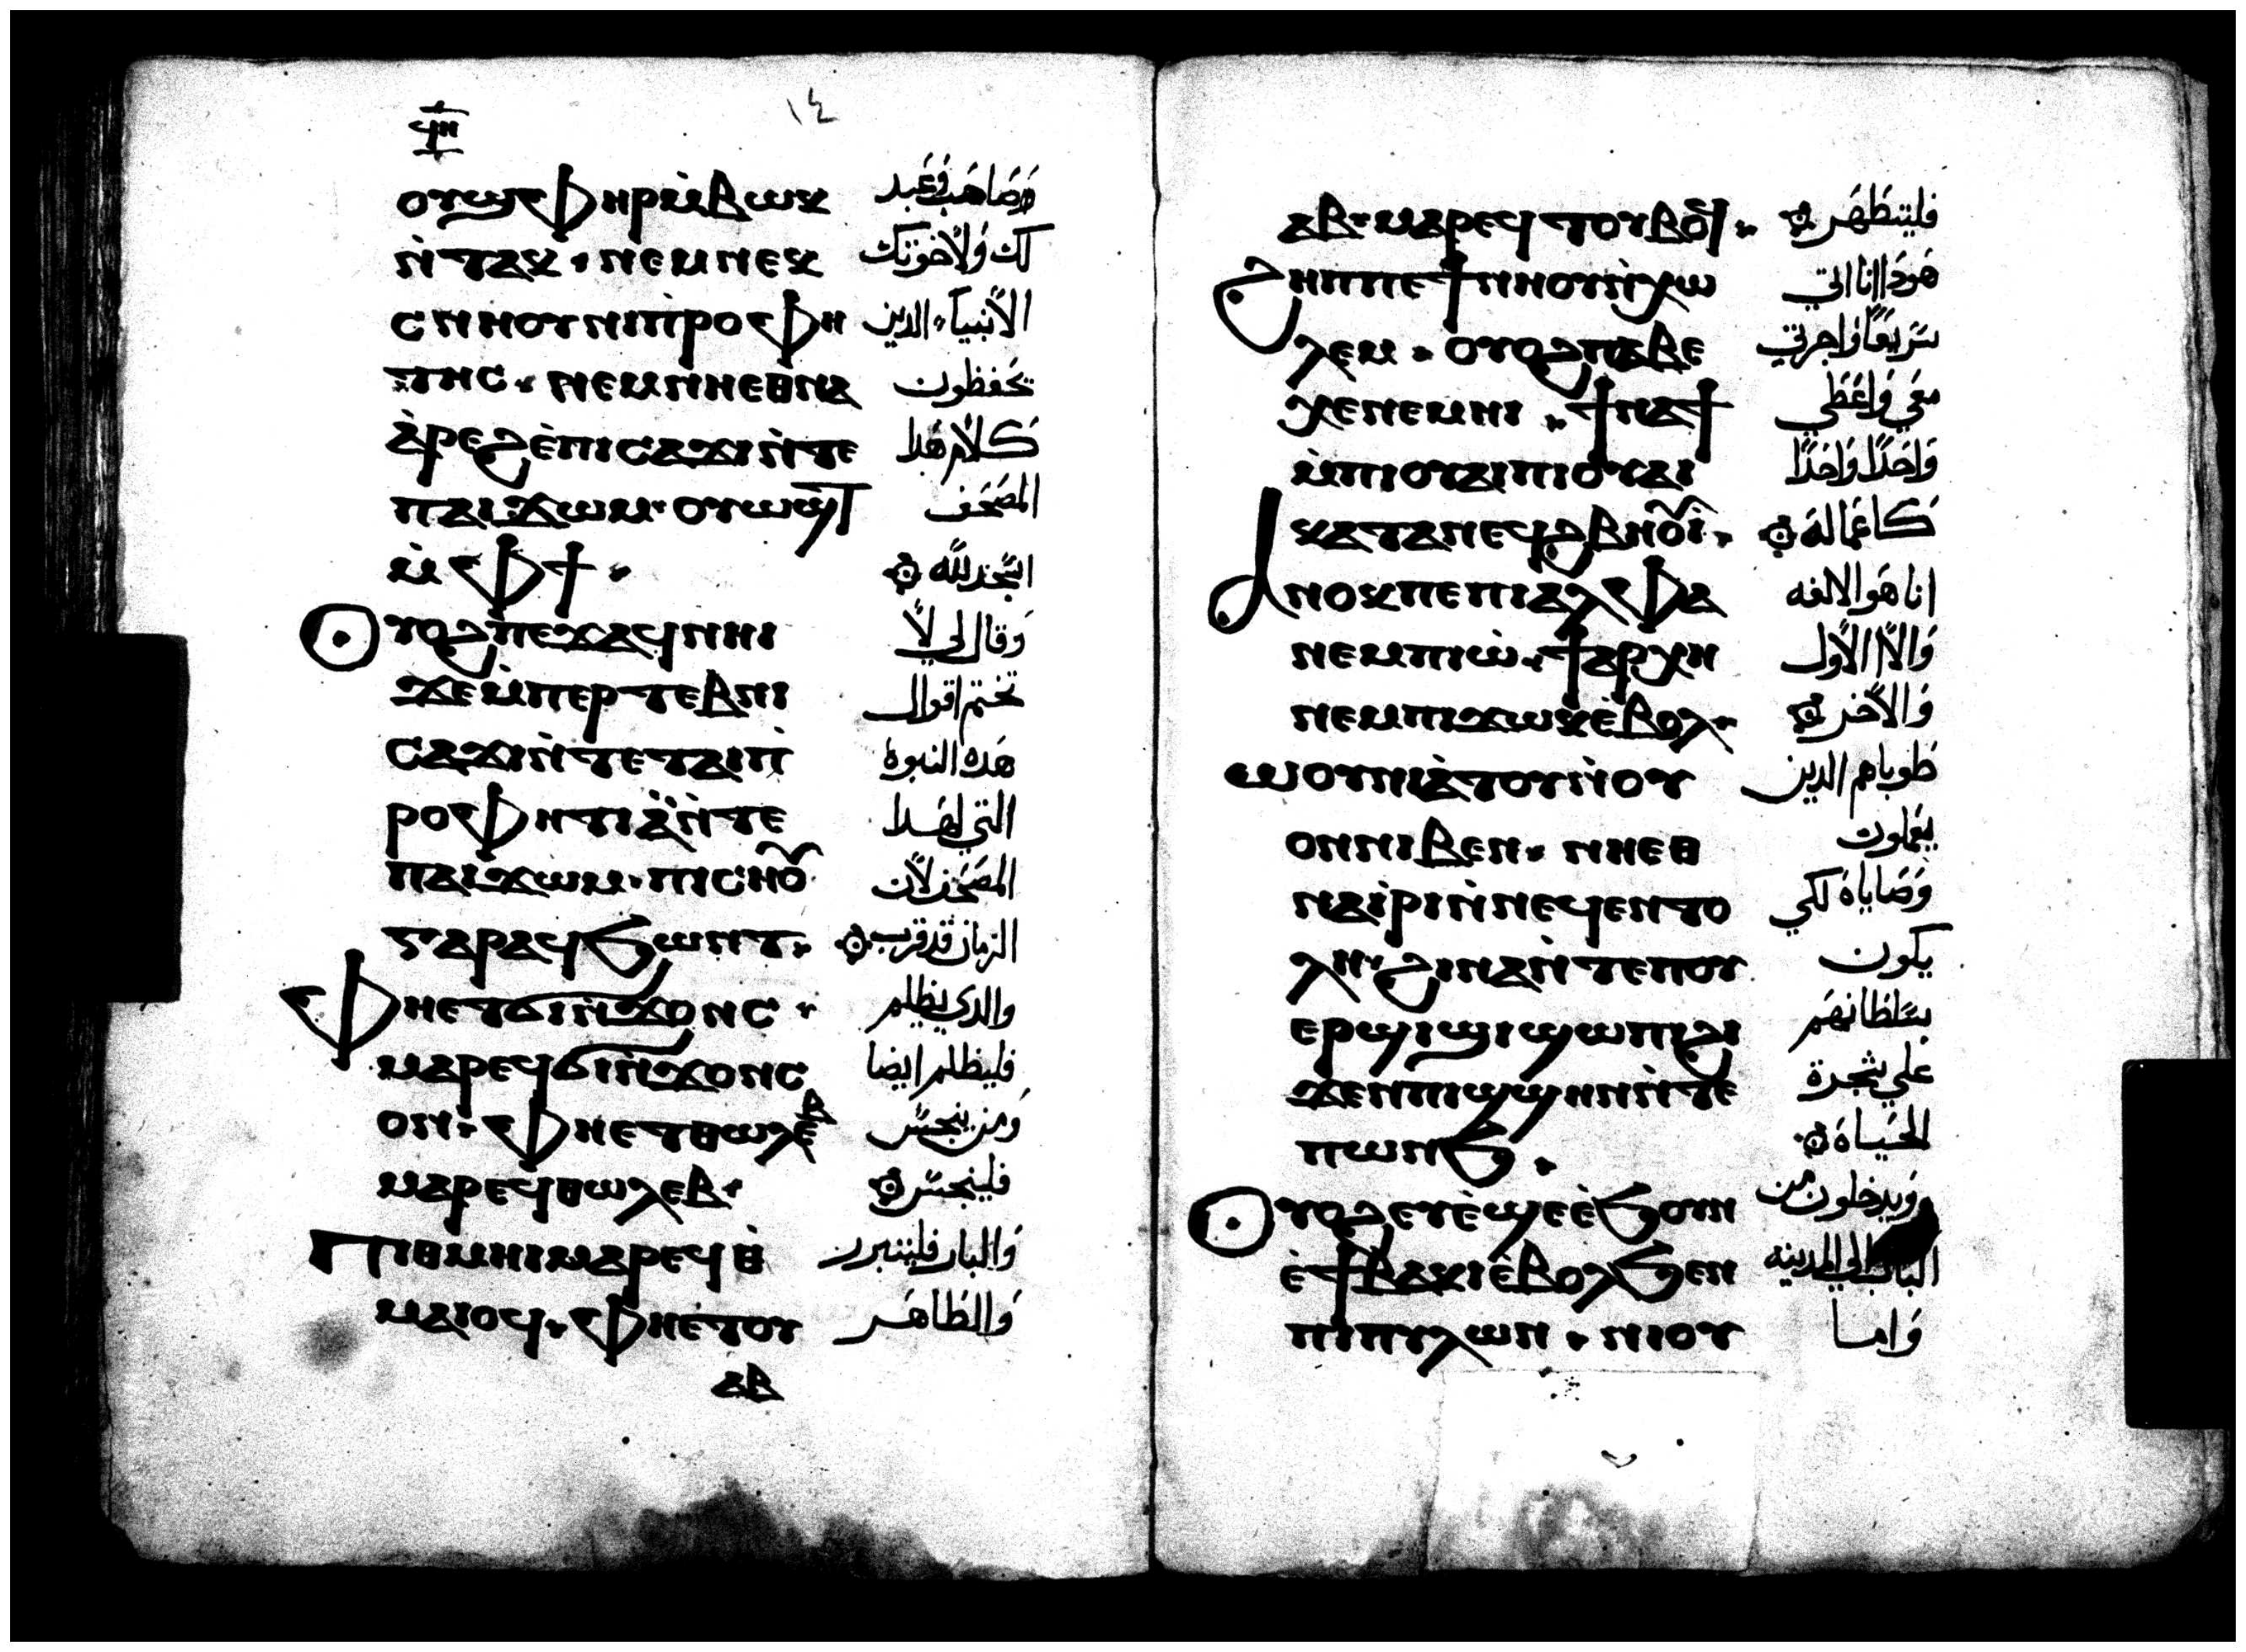 ϥⲏ
١٤
ⲟⲩϣⲫⲏⲣⲙ̀ⲃⲱⲕ وصاحب وعبد
ⲛ̀ⲧⲁⲕ · ⲛⲉⲙⲛⲉⲕ لك ولاخوتك
ⲥⲛⲏⲟⲩⲛⲓⲡ̀ⲣⲟⲫⲏ الانبياء الدين
ⲧⲏⲥ · ⲛⲉⲙⲛⲏⲉⲑⲛⲁ يحفظون
ⲁ̀ⲣⲉϩⲉ̀ⲡⲓⲥⲁϫⲓⲛ̀ⲧⲉ كلام هدا
ⲡⲁⲓϫⲱⲙ · ⲟⲩⲱϣⲧ المصحف
ⲙ̀ⲫϯ · اسجد لله
ⲟⲩⲟϩⲡⲉϫⲁϥⲛⲏⲓ وقال لي لا
ϫⲉⲙ̀ⲡⲉⲣⲧⲉⲃⲛⲓ تختم اقوال
ⲥⲁϫⲓⲛ̀ⲧⲉⲧⲁⲓⲡ̀ هده النبوة
ⲣⲟⲫⲏⲧⲓⲁ̀ⲛ̀ⲧⲉ التي لهدا
ⲡⲁⲓϫⲱⲙ · ⲡⲓⲥⲏⲟ̅ المصحف لان
ⲅⲁⲣⲁϥϧⲱⲛⲧ · الزمان قد قرب
ⲫⲏⲉⲧϭⲓⲛ̀ϫⲟⲛⲥ · والدي يظلم
ⲙⲁⲣⲉϥϭⲓⲛ̀ϫⲟⲛⲥ فليظلم ايضا
ⲟⲛ · ⲫⲏⲉⲧⲑⲱⲗⲉⲃ ومن ينجس
ⲙⲁⲣⲉϥⲑⲱⲗⲉⲃ · فلينجس
ⲡⲓⲑⲙⲏⲓⲙⲁⲣⲉϥⲑ̀ والبار فليتبرر
ⲙⲁⲓⲟϥ · ⲫⲏⲉⲧⲟⲩ والطاهر
ⲁⲃ
ⲁⲃ · ⲙⲁⲣⲉϥⲧⲟⲩⲃⲟ̅ · فليتطهر
ϩⲏⲡⲡⲉϯⲛⲏⲟⲩⲛ̀ⲭⲱ هودا انا اتي
ⲗⲉⲙ · ⲟⲩⲟϩⲡⲁⲃⲉ سريعا واجرتي
ⲭⲉⲛⲉⲙⲏⲓ · ϯⲛⲁϯ معي واعطي
ⲙ̀ⲡⲓⲟⲩⲁⲓⲡⲓⲟⲩⲁⲓ واحدا واحدا
ⲕⲁⲧⲁⲛⲉϥϩⲃⲏⲟ̅ⲓ · كاعماله
ⲁⲛⲟⲕⲡⲉⲡⲓⲁⲗⲫⲁ انا هو الالفه
ⲛⲉⲙⲡⲓⲱ̀ · ϯⲁⲣⲭⲏ والاا الاول
ⲛⲉⲙⲡⲓϫⲱⲕⲉ̀ⲃⲟⲗ · والاخر
ⲱⲟⲩⲛⲓⲁ̀ⲧⲟⲩⲛ̀ⲟⲩ طوباهم الدين
ⲟⲛⲛⲓⲃⲉⲛ · ⲛⲏⲉⲑ يعملون
ⲛⲁⲓ̀ⲣⲓⲛ̀ⲛⲉϥⲉⲛⲧⲟ وصاياه لكي
ⲗⲏ · ϩⲓⲛⲁⲛ̀ⲧⲉⲡⲟⲩ يكون
ⲉⲣϣⲓϣⲓϣⲱⲡⲓϩⲓ سلطانهم
ϫⲉⲛⲡⲓϣϣⲏⲛⲛ̀ⲧⲉ علي شجرة
ⲡⲱⲛϧ · الحياة
ⲟⲩⲟϩⲉⲩⲉ̀ϣⲉⲉ̀ϧⲟⲩⲛ ويدخلون من
ⲉ̀ϯⲃⲁⲕⲓⲉ̀ⲃⲟⲗϧⲉⲛ الباب الي المدينه
ⲡⲓⲡⲩⲗⲱⲛ · ⲛⲓⲟⲩ واما